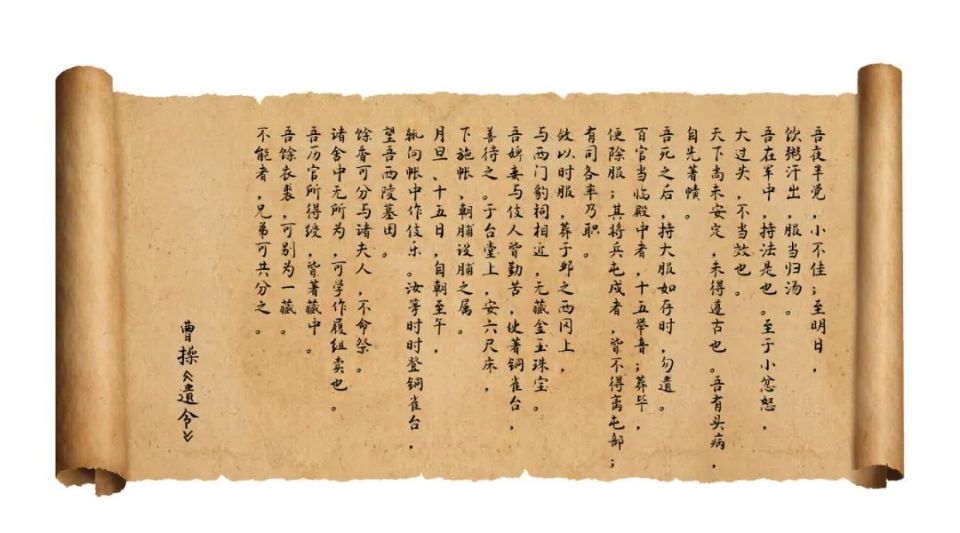 吾夜半觉，小不佳；至明日，
饮粥汗出，服当归汤。
吾在军中，持法是也。至于小忿怒，
大过失，不当效也。
天下尚未安定，未得遵古也。吾有头病，
自先著帻。
吾死之后，持大服如存时，勿遗。
百官当临殿中者，十五举音；葬毕，
便除服；其将兵屯戍者，皆不得离屯部；
有司各率乃职。
敛以时服，葬于邺之西冈上，
与西门豹祠相近，无藏金玉珠宝。
吾婢妾与伎人皆勤苦，使著铜雀台，
善待之。于台堂上，安六尺床，
下施帐，朝脯设脯之属。
月旦、十五日，自朝至午，
辄向帐中作伎乐。汝等时时登铜雀台，
望吾西陵墓田。
馀香可分与诸夫人，不命祭。
诸舍中无所为，可学作履组卖也。
吾历官所得绶，皆著藏中。
吾馀衣裘，可别为一藏。
不能者，兄弟可共分之。
曹操《遗令》